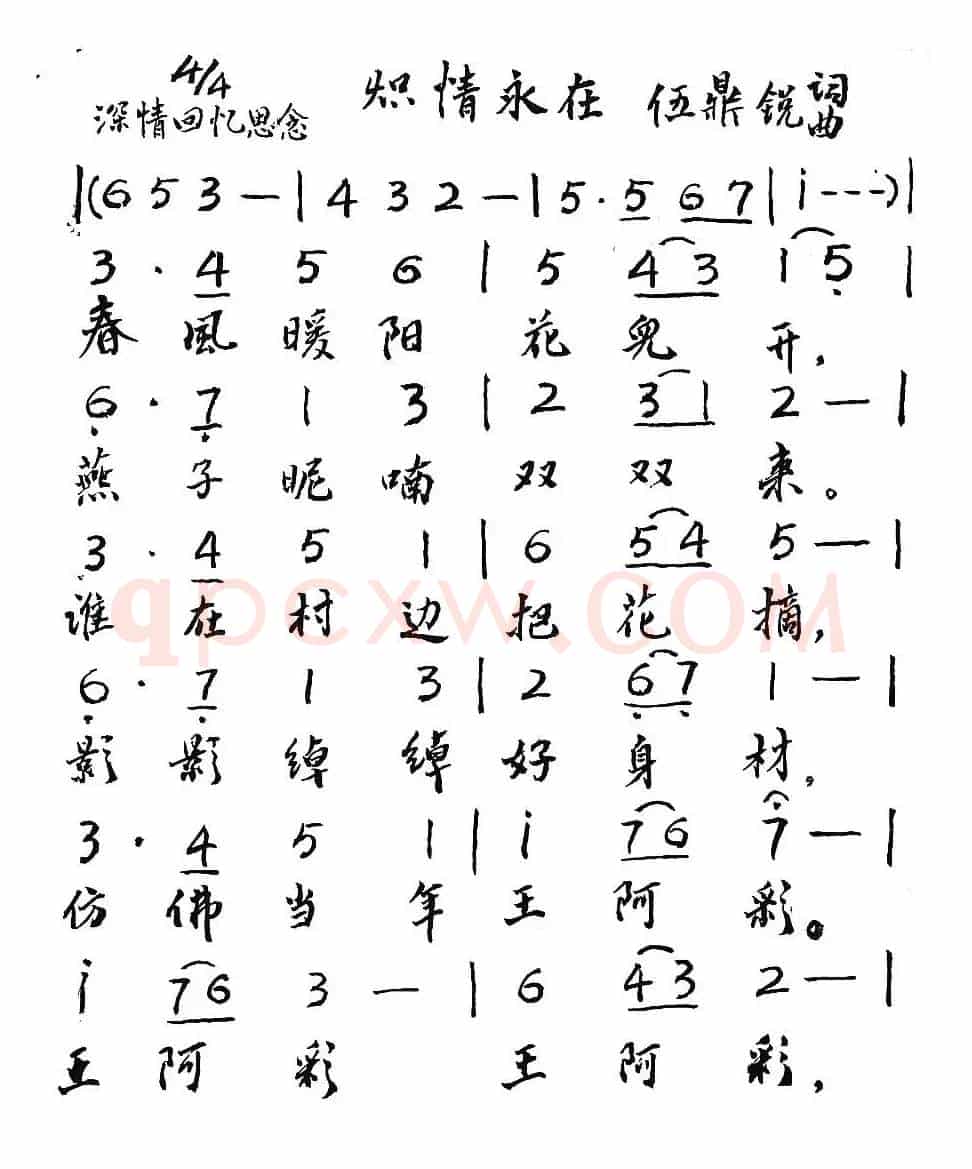 4/4 炽情永在 伍鼎锐 词曲
深情回忆思念
|(6 5 3 —| 4 3 2 —| 5· 5 6 7 | i - - -)|
3 · 4 5 6 | 5 4 3 1 5 |
春 風 暖 阳 花 児 开,
6 · 7 1 3 | 2 3 1 2 — |
燕 子 昵 喃 双 双 来。
3 · 4 5 1 | 6 5 4 5 — |
谁 在 村 边 把 花 摘,
qpcxw.com
6 · 7 1 3 | 2 6 7 1 — |
影 影 绰 绰 好 身 材,
3 · 4 5 1 | i 7 6 7 — |
仿 佛 当 年 王 阿 彩。
i 7 6 3 — | 6 4 3 2 — |
王 阿 彩 王 阿 彩,